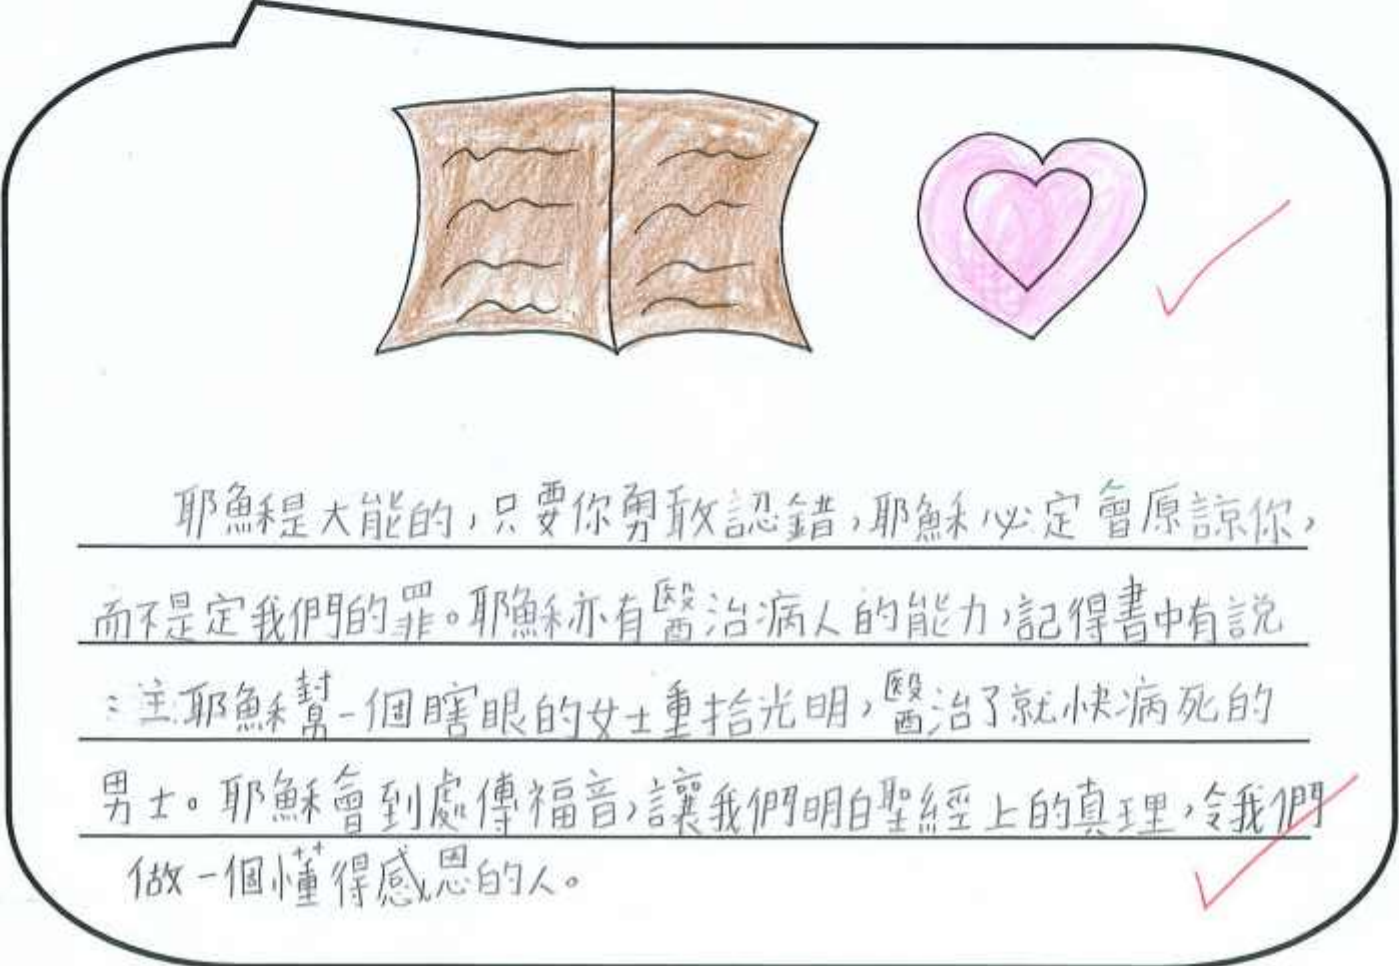 耶穌是大能的，只要你勇敢認錯，耶穌必定會原諒你，
而不是定我們的罪。耶穌亦有醫治病人的能力，記得書中有說
：主耶穌幫一個瞎眼的女士重拾光明，醫治了就快病死的
男士。耶穌會到處傳福音，讓我們明白聖經上的真理，令我們
做一個懂得感恩的人。